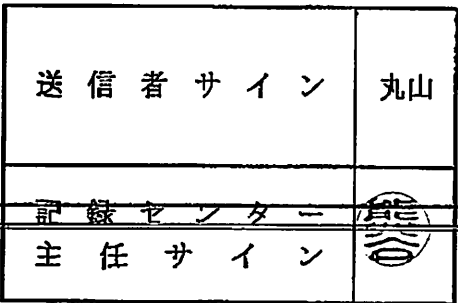 送信者サイン 丸山
記録センター
主任サイン 熊谷